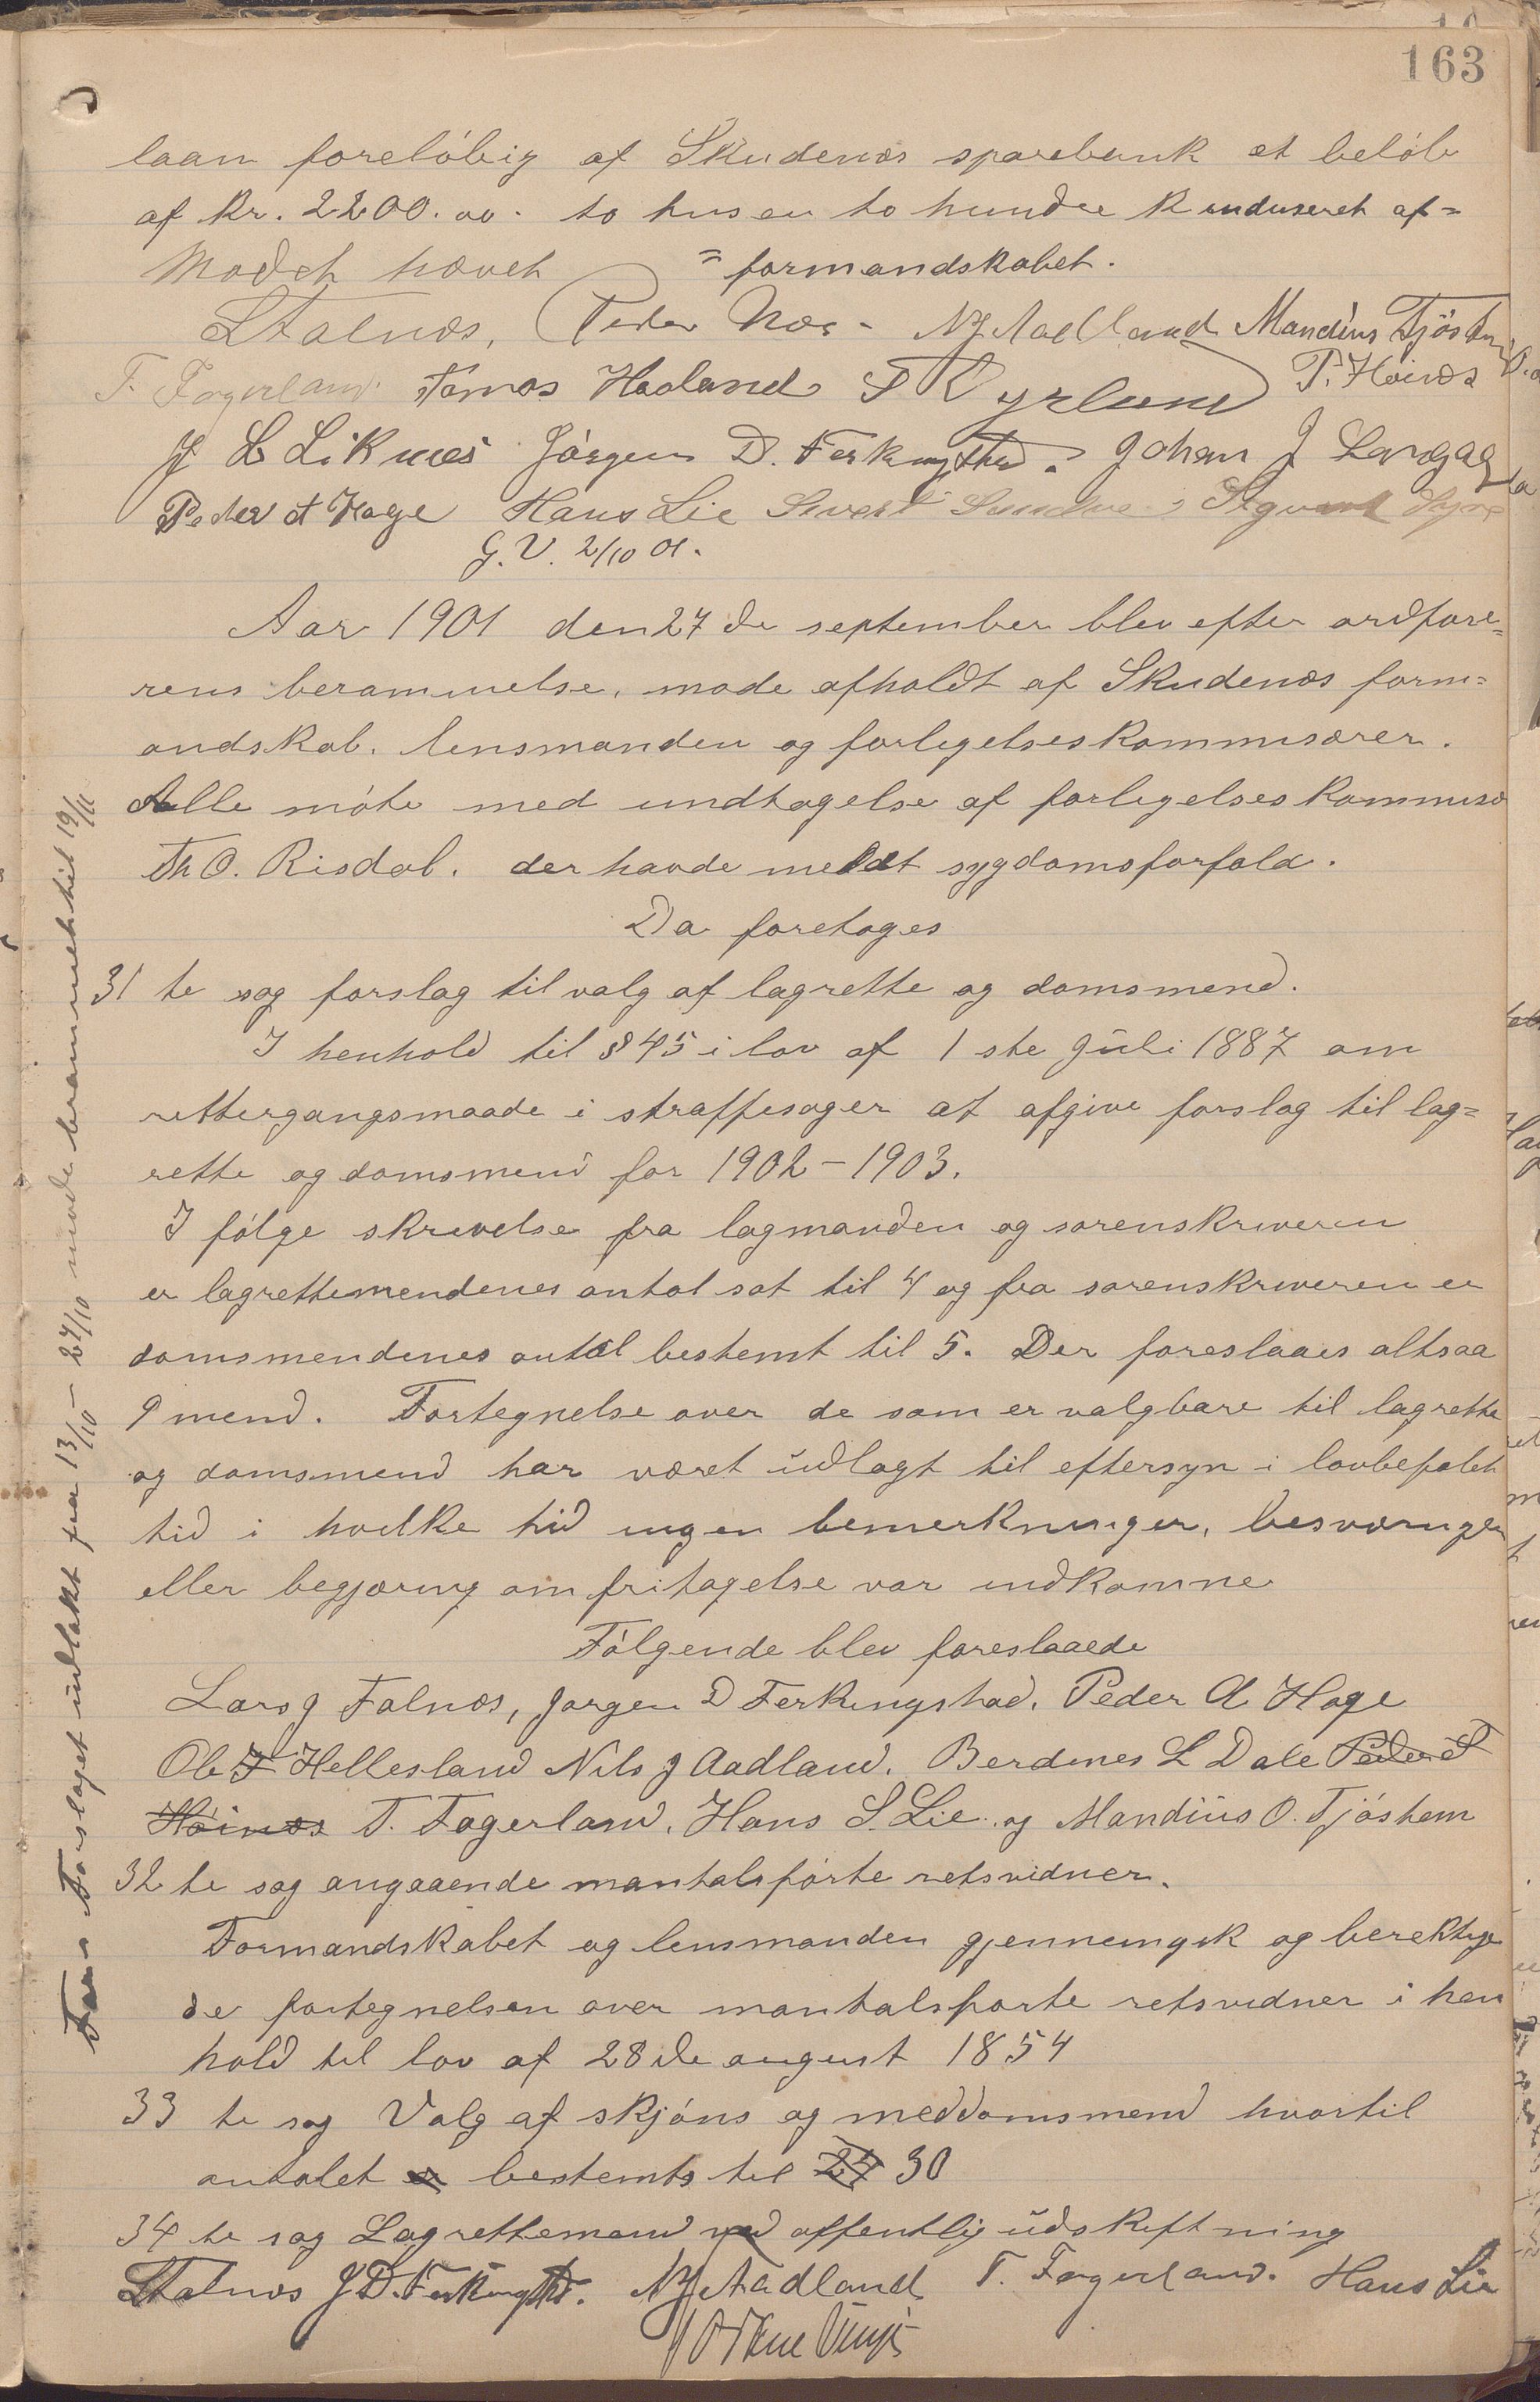 163
laan foreløbig af Skudenæs sparebank et beløb
af kr. 2200.00. to tusen to hundre K induseret af=
Mødet hævet =formandskabet.
L Falnæs, Peder Næs - NJ Aadland Mandius Tjøstem
T. Fagerland Tomas Haaland T. Høinæs
J L Liknes Jørgen D. Ferkingstad. Johan J Langag
Peder A Hage Hans Lie Sivert Sundve Sigvart Syre
G.V. 2/10 01.
Aar 1901 den 27 de september blev efter ordføre=
rens berammelse, møde afholdt af Skudenæs form=
andskab. lensmanden og forligelseskommisærer.
Alle møte med undtagelse af forligelseskommisæ
Th O. Risdal. der havde meldt sygdomsforfald.
Da foretoges
31 te sag forslag til valg af lagrette og domsmend.
I henhold til § 45 i lov af 1 ste Juli 1887 om
rettergangsmaade i straffesager at afgive forslag til lag=
rette og domsmend for 1902-1903.
I følge skrivelse fra lagmanden og sorenskriveren
er lagrettemendenes antal sat til 4 og fra sorenskriveren er
domsmendenes antal bestemt til 5. Der foreslaaes altsaa
9 mend. Fortegnelse over de som er valgbare til lagrette
og domsmend har været udlagt til eftersyn i lovbefalet
tid i hvilke tid ingen bemerkninger, besværinger
eller begjæring om fritagelse var indkomne
Følgende blev foreslaaede
Lars J Falnæs, Jørgen D Ferkingstad, Peder A Hage
Ole F Hellesland Nils J Aadland, Berdines L Dale Peder T
Høinæs T. Fagerland, Hans S. Lie. og Mandius O. Tjøstem
32 te sag angaaende mantalsførte retsvidner.
Formandskabet og lensmanden gjennemgik og berektige
de fortegnelsen over mantalsførte retsvidner i hen
hold til lov af 28 de august 1854
33 te sag Valg af skjøns og meddomsmend hvortil
antalet er bestemts til 24 30
34 te sag Lagrettemænd ved offentlig udskiftning
L Falnæs J D. Ferkingstd. NJ Aadland T. Fagerland. Hans Lie
Forslaget udlakt fra 13/10 - 27/10 møde berammet til 19/11